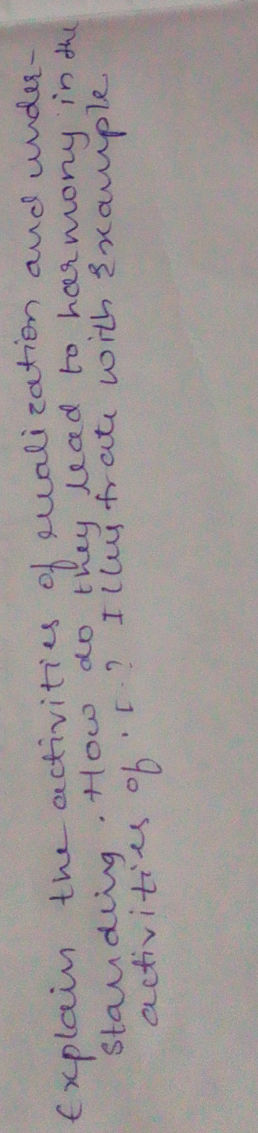 Explain the activities of realization and under-
standing. How do they lead to harmony in the
activities of 'I'? Illustrate with Example